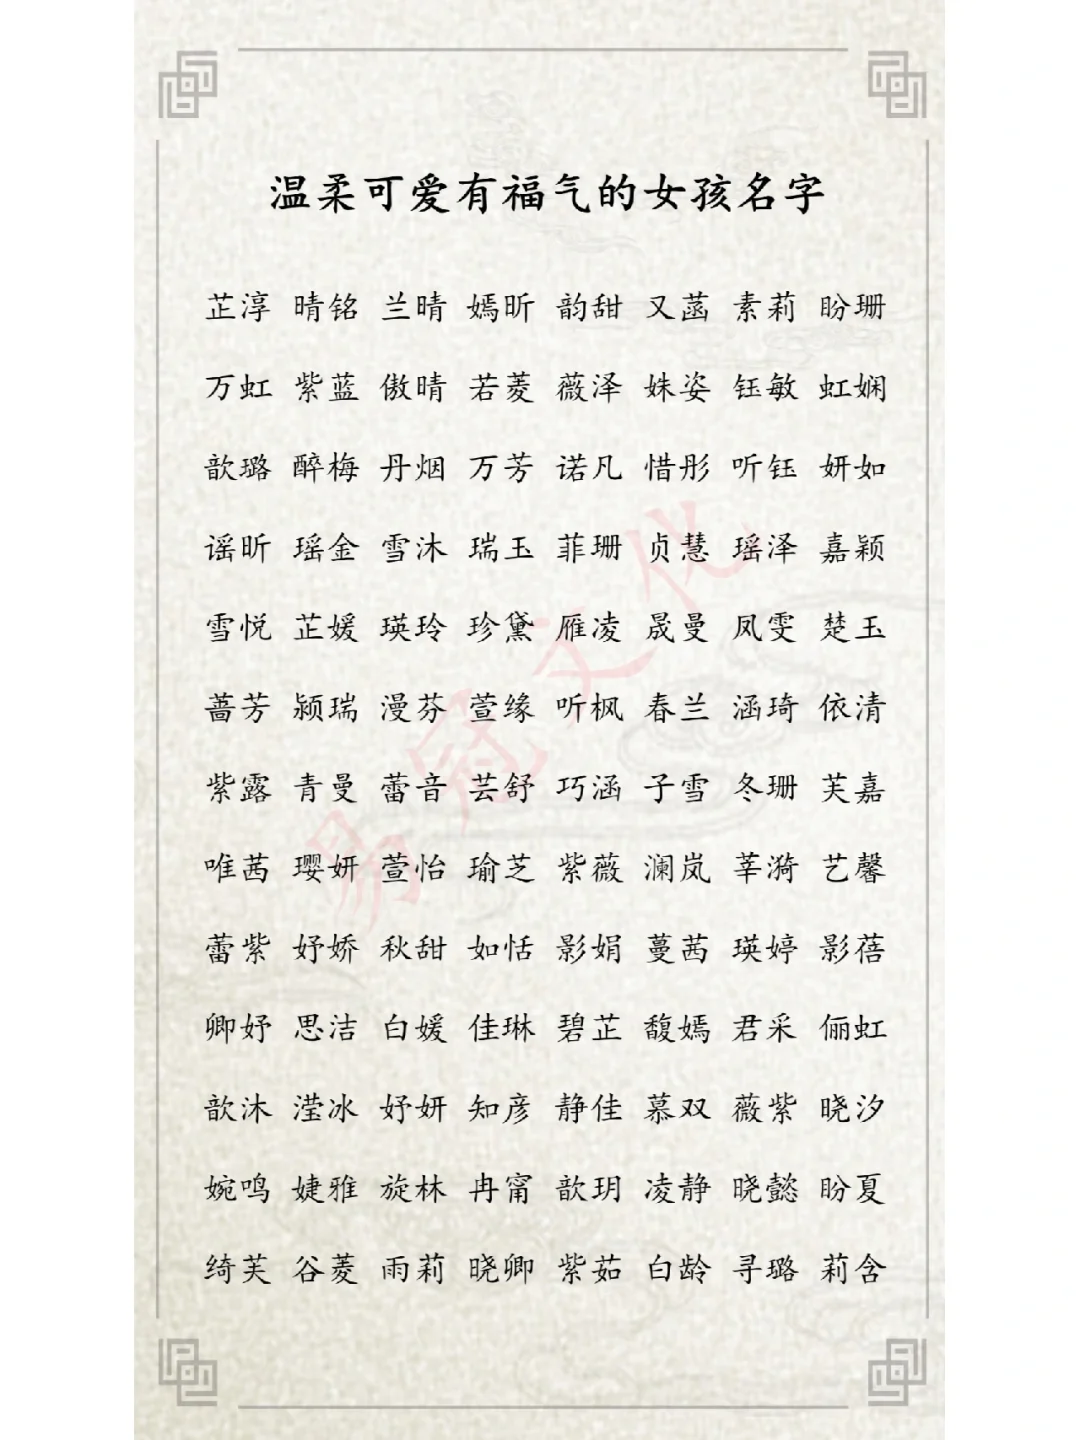 温柔可爱有福气的女孩名字
芷淳 晴铭 兰晴 嫣昕 韵甜 又菡 素莉 盼珊
万虹 紫蓝 傲晴 若菱 薇泽 姝姿 钰敏 虹娴
歆璐 醉梅 丹烟 万芳 诺凡 惜彤 听钰 妍如
谣昕 瑶金 雪沐 瑞玉 菲珊 贞慧 瑶泽 嘉颖
雪悦 芷媛 瑛玲 珍黛 雁凌 晟曼 凤雯 楚玉
蔷芳 颍瑞 漫芬 萱缘 听枫 春兰 涵琦 依清
紫露 青曼 蕾音 芸舒 巧涵 子雪 冬珊 芙嘉
唯茜 璎妍 萱怡 瑜芝 紫薇 澜岚 莘漪 艺馨
蕾紫 妤娇 秋甜 如恬 影娟 蔓茜 瑛婷 影蓓
卿妤 思洁 白媛 佳琳 碧芷 馥嫣 君采 俪虹
歆沐 滢冰 妤妍 知彦 静佳 慕双 薇紫 晓汐
婉鸣 婕雅 旋林 冉甯 歆玥 凌静 晓懿 盼夏
绮芙 谷菱 雨莉 晓卿 紫茹 白龄 寻璐 莉含
易冠文化